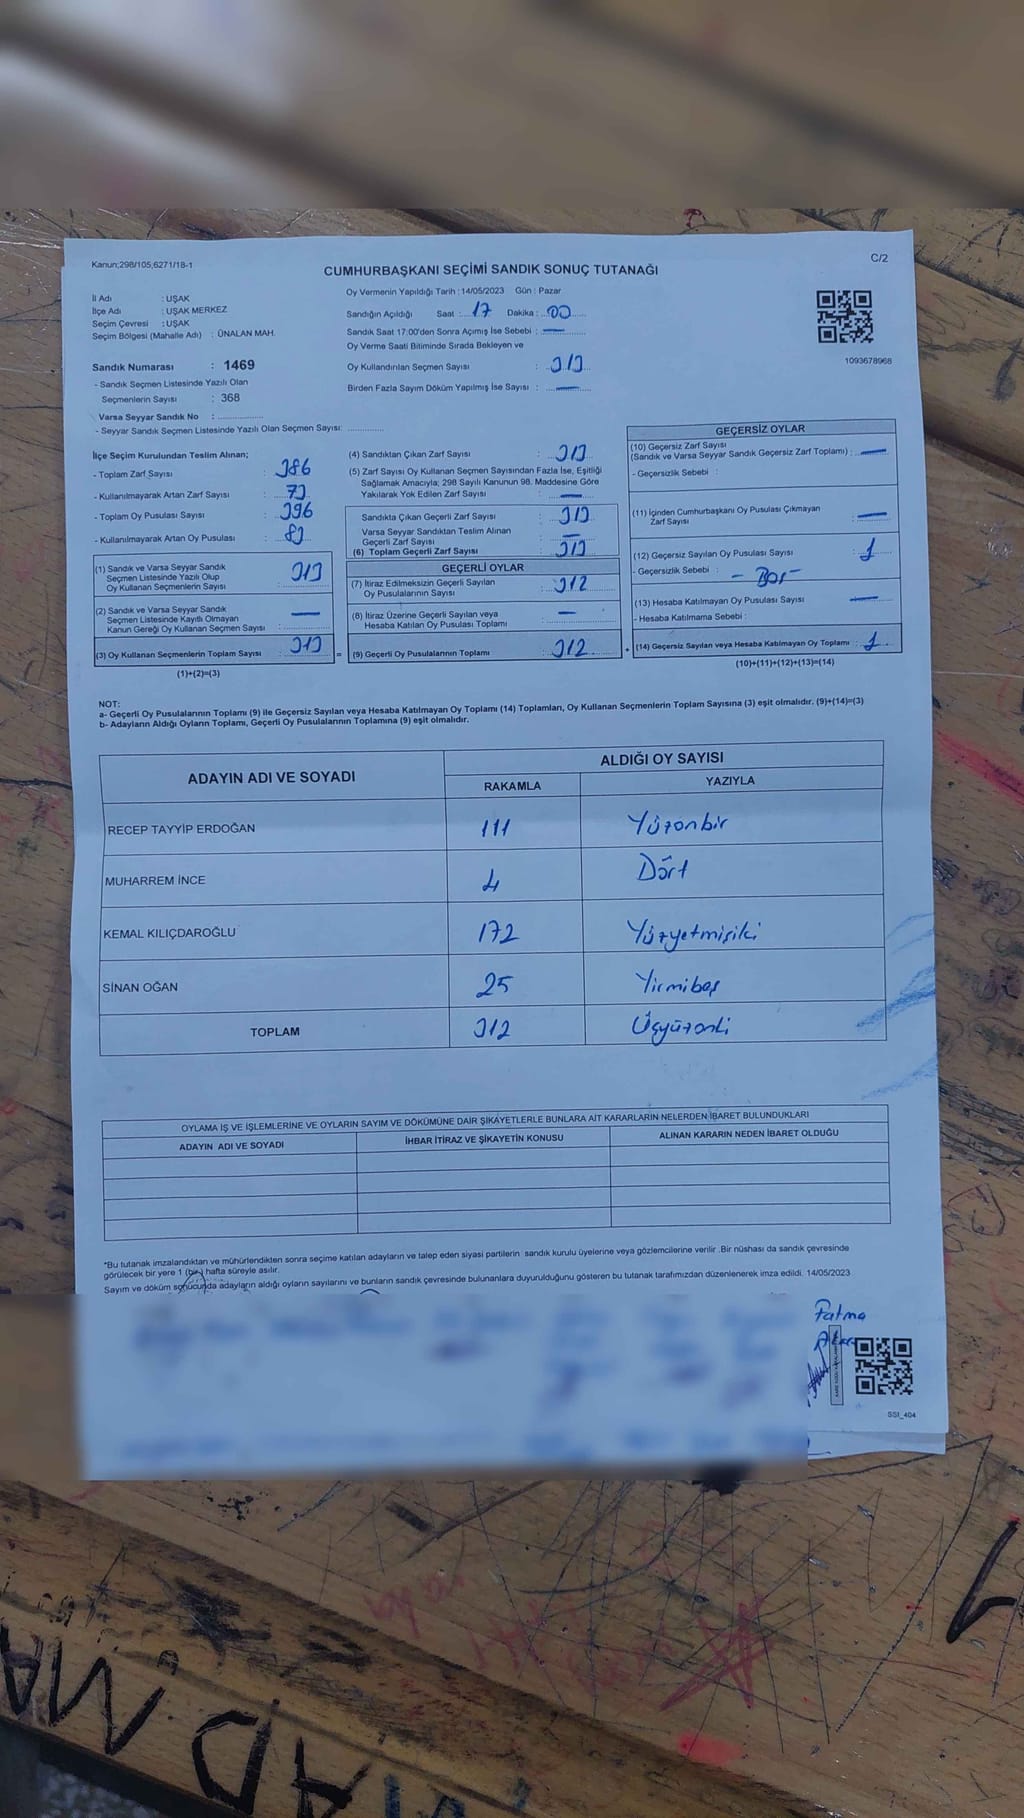 Kanun;298/105,6271/18-1
C/2
CUMHURBAŞKANI SEÇİMİ SANDIK SONUÇ TUTANAĞI
İl Adı : UŞAK
İlçe Adı : UŞAK MERKEZ
Seçim Çevresi : UŞAK
Seçim Bölgesi (Mahalle Adı) : ÜNALAN MAH.
Sandık Numarası : 1469
- Sandık Seçmen Listesinde Yazılı Olan
Seçmenlerin Sayısı : 368
Varsa Seyyar Sandık No :
- Seyyar Sandık Seçmen Listesinde Yazılı Olan Seçmen Sayısı:
Oy Vermenin Yapıldığı Tarih : 14/05/2023 Gün : Pazar
Sandığın Açıldığı Saat : 17 Dakika : 00
Sandık Saat 17:00'den Sonra Açımış İse Sebebi : —
Oy Verme Saati Bitiminde Sırada Bekleyen ve
Oy Kullandırılan Seçmen Sayısı : 313
Birden Fazla Sayım Döküm Yapılmış İse Sayısı : —
1093678968
İlçe Seçim Kurulundan Teslim Alınan;
- Toplam Zarf Sayısı : 386
- Kullanılmayarak Artan Zarf Sayısı : 73
- Toplam Oy Pusulası Sayısı : 396
- Kullanılmayarak Artan Oy Pusulası : 83
(1) Sandık ve Varsa Seyyar Sandık
Seçmen Listesinde Yazılı Olup
Oy Kullanan Seçmenlerin Sayısı : 313
(2) Sandık ve Varsa Seyyar Sandık
Seçmen Listesinde Kayıtlı Olmayan
Kanun Gereği Oy Kullanan Seçmen Sayısı : —
(3) Oy Kullanan Seçmenlerin Toplam Sayısı 313 =
(1)+(2)=(3)
(4) Sandıktan Çıkan Zarf Sayısı : 313
(5) Zarf Sayısı Oy Kullanan Seçmen Sayısından Fazla İse, Eşitliği
Sağlamak Amacıyla; 298 Sayılı Kanunun 98. Maddesine Göre
Yakılarak Yok Edilen Zarf Sayısı : —
Sandıkta Çıkan Geçerli Zarf Sayısı : 313
Varsa Seyyar Sandıktan Teslim Alınan
Geçerli Zarf Sayısı : —
(6) Toplam Geçerli Zarf Sayısı : 313
GEÇERLİ OYLAR
(7) İtiraz Edilmeksizin Geçerli Sayılan
Oy Pusulalarının Sayısı : 312
(8) İtiraz Üzerine Geçerli Sayılan veya
Hesaba Katılan Oy Pusulası Toplamı : —
(9) Geçerli Oy Pusulalarının Toplamı : 312 +
GEÇERSİZ OYLAR
(10) Geçersiz Zarf Sayısı
(Sandık ve Varsa Seyyar Sandık Geçersiz Zarf Toplamı) : —
- Geçersizlik Sebebi :
(11) İçinden Cumhurbaşkanı Oy Pusulası Çıkmayan
Zarf Sayısı : —
(12) Geçersiz Sayılan Oy Pusulası Sayısı : 1
- Geçersizlik Sebebi : - Boş -
(13) Hesaba Katılmayan Oy Pusulası Sayısı : —
- Hesaba Katılmama Sebebi :
(14) Geçersiz Sayılan veya Hesaba Katılmayan Oy Toplamı : 1
(10)+(11)+(12)+(13)=(14)
NOT:
a- Geçerli Oy Pusulalarının Toplamı (9) ile Geçersiz Sayılan veya Hesaba Katılmayan Oy Toplamı (14) Toplamları, Oy Kullanan Seçmenlerin Toplam Sayısına (3) eşit olmalıdır. (9)+(14)=(3)
b- Adayların Aldığı Oyların Toplamı, Geçerli Oy Pusulalarının Toplamına (9) eşit olmalıdır.
ADAYIN ADI VE SOYADI ALDIĞI OY SAYISI
RAKAMLA YAZIYLA
RECEP TAYYİP ERDOĞAN 111 Yüzonbir
MUHARREM İNCE 4 Dört
KEMAL KILIÇDAROĞLU 172 Yüzyetmişiki
SİNAN OĞAN 25 Yirmibeş
TOPLAM 312 Üçyüzoniki
OYLAMA İŞ VE İŞLEMLERİNE VE OYLARIN SAYIM VE DÖKÜMÜNE DAİR ŞİKAYETLERLE BUNLARA AİT KARARLARIN NELERDEN İBARET BULUNDUKLARI
ADAYIN ADI VE SOYADI İHBAR İTİRAZ VE ŞİKAYETİN KONUSU ALINAN KARARIN NEDEN İBARET OLDUĞU
*Bu tutanak imzalandıktan ve mühürlendikten sonra seçime katılan adayların ve talep eden siyasi partilerin sandık kurulu üyelerine veya gözlemcilerine verilir .Bir nüshası da sandık çevresinde
görülecek bir yere 1 (bir) hafta süreyle asılır.
Sayım ve döküm sonucunda adayların aldığı oyların sayılarını ve bunların sandık çevresinde bulunanlara duyurulduğunu gösteren bu tutanak tarafımızdan düzenlenerek imza edildi. 14/05/2023
Fatma
SSI_404